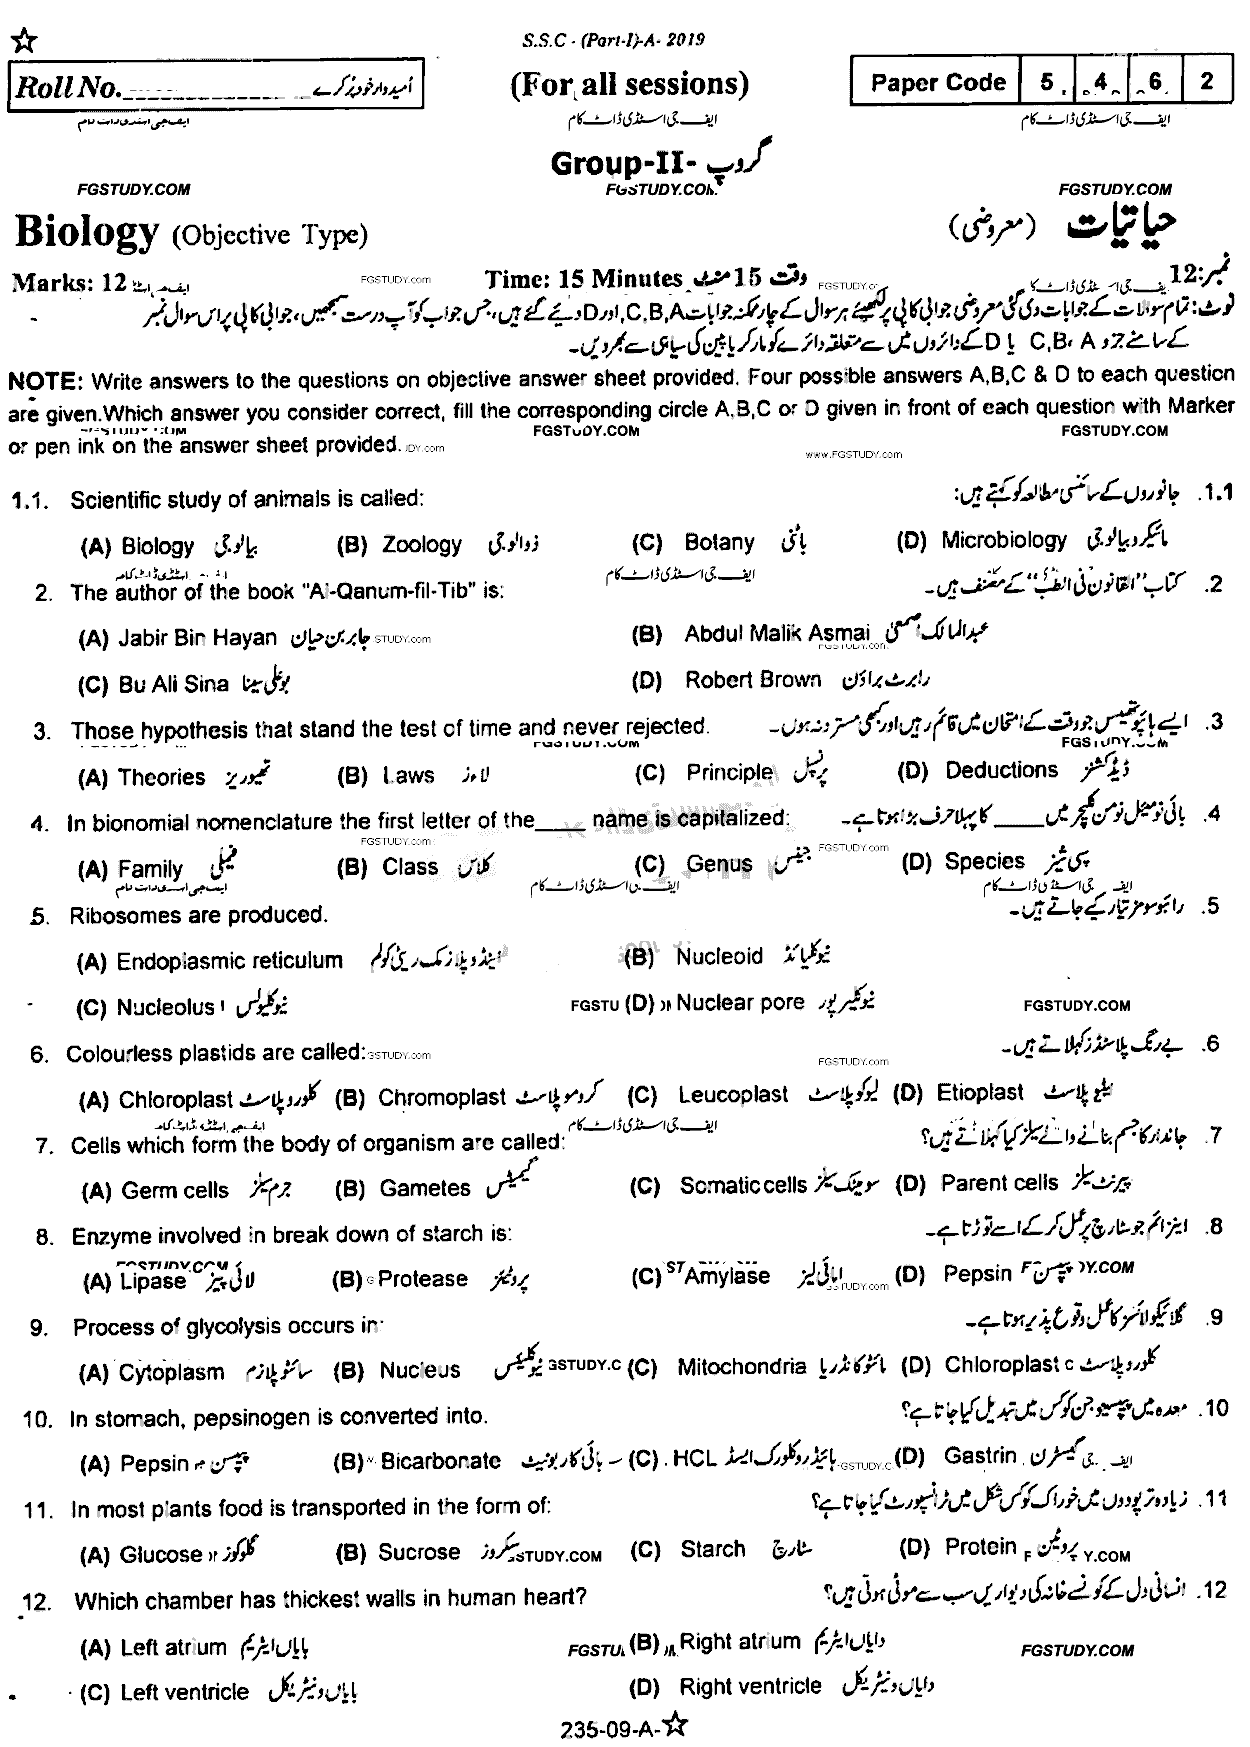 ☆
S.S.C - (Part-I)-A- 2019
Roll No. امیدوار خود پُر کرے
(For all sessions)
Paper Code 5 4 6 2
ایف جی اسٹڈی ڈاٹ کام ایف جی اسٹڈی ڈاٹ کام ایف جی اسٹڈی ڈاٹ کام
Group-II- گروپ
FGSTUDY.COM FGSTUDY.COM FGSTUDY.COM
Biology (Objective Type) حیاتیات (معروضی)
Marks: 12 FGSTUDY.com Time: 15 Minutes وقت 15 منٹ نمبر:12
نوٹ: تمام سوالات کے جوابات دی گئی معروضی جوابی کاپی پر لکھیئے ہر سوال کے چار ممکنہ جوابات A,B,C اور D دیئے گئے ہیں، جس جواب کو آپ درست سمجھیں، جوابی کاپی پر اس سوال نمبر
کے سامنے دیئے گئے A, B, C یا D کے دائروں میں سے متعلقہ دائرے کو مارکر یا پین کی سیاہی سے بھر دیں۔
NOTE: Write answers to the questions on objective answer sheet provided. Four possible answers A,B,C & D to each question
are given.Which answer you consider correct, fill the corresponding circle A,B,C or D given in front of each question with Marker
FGSTUDY.COM FGSTUDY.COM
or pen ink on the answer sheet provided.
www.FGSTUDY.com
1.1. Scientific study of animals is called: 1.1. جانوروں کے سائنسی مطالعہ کو کہتے ہیں:
(A) Biology بیالوجی (B) Zoology زوالوجی (C) Botany باٹنی (D) Microbiology مائیکروبیالوجی
ایف جی اسٹڈی ڈاٹ کام
2. The author of the book "Al-Qanum-fil-Tib" is: 2. کتاب "القانون فی الطب" کے مصنف ہیں۔
(A) Jabir Bin Hayan جابر بن حیان (B) Abdul Malik Asmai عبدالمالک اصمعی
(C) Bu Ali Sina بوعلی سینا (D) Robert Brown رابرٹ براؤن
3. Those hypothesis that stand the test of time and never rejected. 3. ایسے ہائپوتھیسیس جو وقت کے امتحان میں قائم رہیں اور کبھی مسترد نہ ہوں۔
FGSTUDY.COM FGSTUDY.COM
(A) Theories تھیوریز (B) Laws لاءز (C) Principle پرنسپل (D) Deductions ڈیڈکشنز
4. In bionomial nomenclature the first letter of the____ name is capitalized: 4. بائی نومیئل نومن کلیچر میں ____ کا پہلا حرف بڑا ہوتا ہے۔
FGSTUDY.com FGSTUDY.com
(A) Family فیملی (B) Class کلاس (C) Genus جینس (D) Species سپی شیز
ایف جی اسٹڈی ڈاٹ کام ایف جی اسٹڈی ڈاٹ کام ایف جی اسٹڈی ڈاٹ کام
5. Ribosomes are produced. 5. رائبوسومز تیار کے جاتے ہیں۔
(A) Endoplasmic reticulum اینڈوپلازمک ریٹی کولم (B) Nucleoid نیوکلیائڈ
(C) Nucleolus نیوکلیولس (D) Nuclear pore نیوکلیر پور FGSTUDY.COM
6. Colourless plastids are called: 6. بے رنگ پلاسٹڈز کہلاتے ہیں۔
FGSTUDY.com
(A) Chloroplast کلوروپلاسٹ (B) Chromoplast کروموپلاسٹ (C) Leucoplast لیوکوپلاسٹ (D) Etioplast ایٹیوپلاسٹ
ایف جی اسٹڈی ڈاٹ کام
7. Cells which form the body of organism are called: 7. جاندار کا جسم بنانے والے سیلز کیا کہلاتے ہیں؟
(A) Germ cells جرم سیلز (B) Gametes گیمیٹس (C) Somatic cells سومیٹک سیلز (D) Parent cells پیرنٹ سیلز
8. Enzyme involved in break down of starch is: 8. اینزائم جو سٹارچ پر عمل کر کے اسے توڑتا ہے۔
(A) Lipase لائی پیز (B) Protease پروٹیئز (C) Amylase امائی لیز (D) Pepsin پیپسن
9. Process of glycolysis occurs in: 9. گلائیکولائسز کا عمل وقوع پذیر ہوتا ہے۔
(A) Cytoplasm سائٹوپلازم (B) Nucleus نیوکلیئس (C) Mitochondria مائٹوکانڈریا (D) Chloroplast کلوروپلاسٹ
10. In stomach, pepsinogen is converted into. 10. معدہ میں پیپسینوجن کو کس میں تبدیل کیا جاتا ہے؟
(A) Pepsin پیپسن (B) Bicarbonate بائی کاربونیٹ (C) HCL ہائیڈروکلورک ایسڈ (D) Gastrin گیسٹرن
11. In most plants food is transported in the form of: 11. زیادہ تر پودوں میں خوراک کو کس شکل میں ٹرانسپورٹ کیا جاتا ہے؟
(A) Glucose گلوکوز (B) Sucrose سکروز (C) Starch سٹارچ (D) Protein پروٹین
12. Which chamber has thickest walls in human heart? 12. انسانی دل کے کونسے خانہ کی دیواریں سب سے موٹی ہوتی ہیں؟
(A) Left atrium بایاں ایٹریم (B) Right atrium دایاں ایٹریم FGSTUDY.COM
(C) Left ventricle بایاں وینٹریکل (D) Right ventricle دایاں وینٹریکل
235-09-A-☆